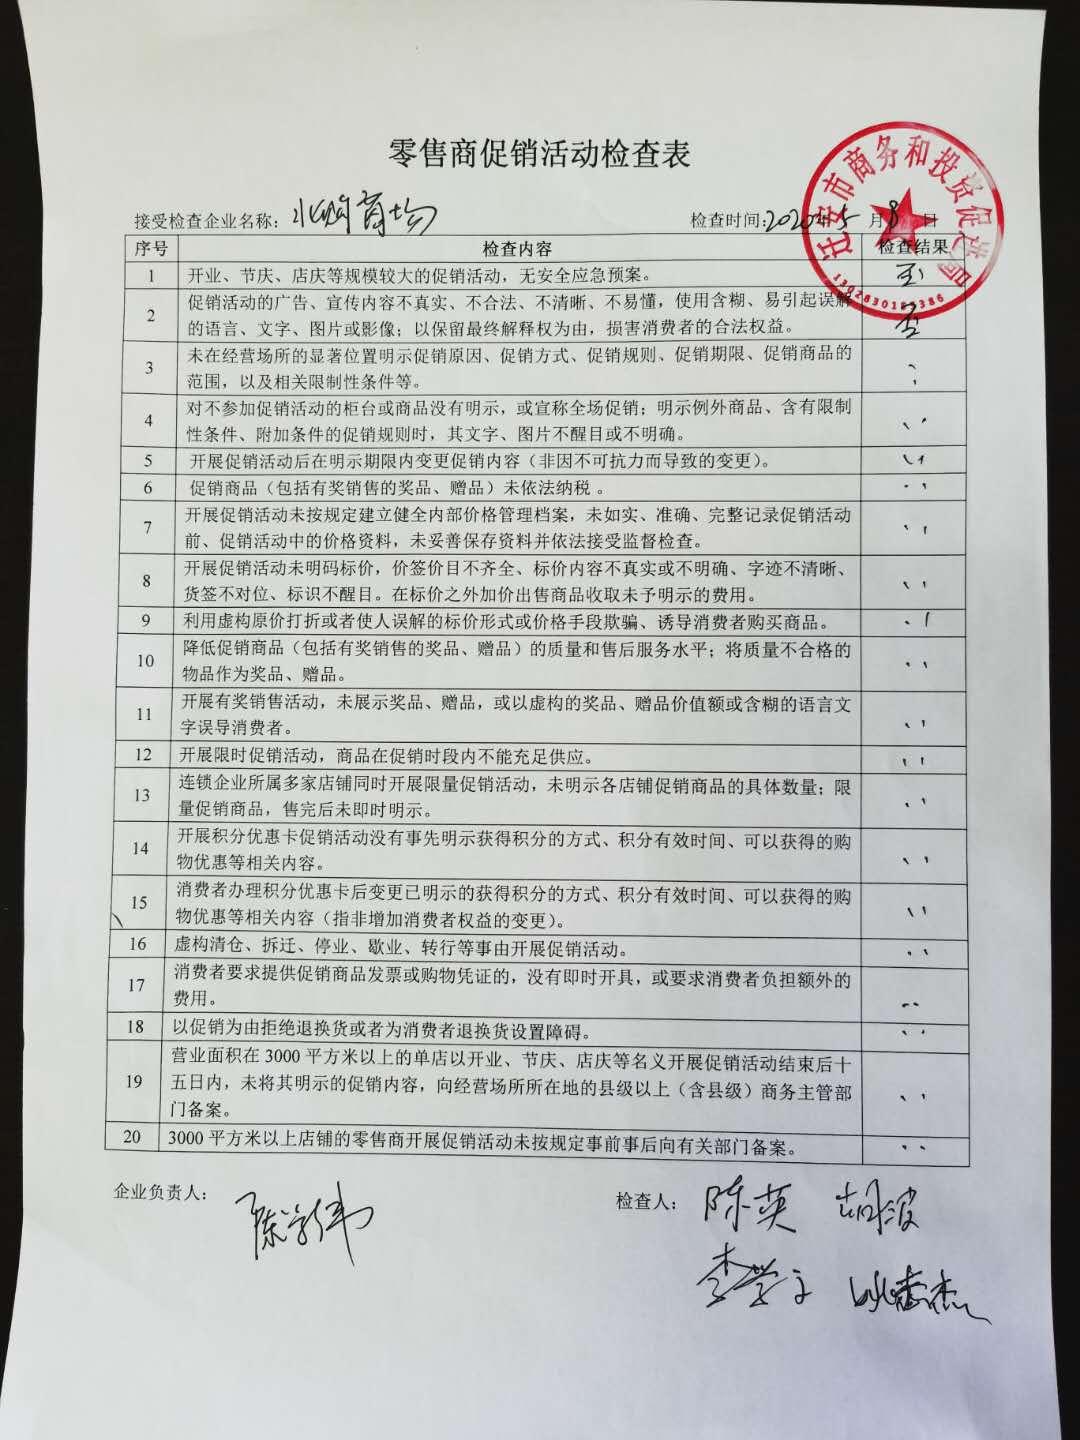 零售商促销活动检查表
迁安市商务和投资促进局
接受检查企业名称：北购商场 检查时间:2020年5月8日
序号 检查内容 检查结果
1 开业、节庆、店庆等规模较大的促销活动，无安全应急预案。 否
2 促销活动的广告、宣传内容不真实、不合法、不清晰、不易懂，使用含糊、易引起误解
的语言、文字、图片或影像；以保留最终解释权为由，损害消费者的合法权益。 否
3 未在经营场所的显著位置明示促销原因、促销方式、促销规则、促销期限、促销商品的
范围，以及相关限制性条件等。
4 对不参加促销活动的柜台或商品没有明示，或宣称全场促销；明示例外商品、含有限制
性条件、附加条件的促销规则时，其文字、图片不醒目或不明确。
5 开展促销活动后在明示期限内变更促销内容（非因不可抗力而导致的变更）。
6 促销商品（包括有奖销售的奖品、赠品）未依法纳税 。
7 开展促销活动未按规定建立健全内部价格管理档案，未如实、准确、完整记录促销活动
前、促销活动中的价格资料，未妥善保存资料并依法接受监督检查。
8 开展促销活动未明码标价，价签价目不齐全、标价内容不真实或不明确、字迹不清晰、
货签不对位、标识不醒目。在标价之外加价出售商品收取未予明示的费用。
9 利用虚构原价打折或者使人误解的标价形式或价格手段欺骗、诱导消费者购买商品。
10 降低促销商品（包括有奖销售的奖品、赠品）的质量和售后服务水平；将质量不合格的
物品作为奖品、赠品。
11 开展有奖销售活动，未展示奖品、赠品，或以虚构的奖品、赠品价值额或含糊的语言文
字误导消费者。
12 开展限时促销活动，商品在促销时段内不能充足供应。
13 连锁企业所属多家店铺同时开展限量促销活动，未明示各店铺促销商品的具体数量；限
量促销商品，售完后未即时明示。
14 开展积分优惠卡促销活动没有事先明示获得积分的方式、积分有效时间、可以获得的购
物优惠等相关内容。
15 消费者办理积分优惠卡后变更已明示的获得积分的方式、积分有效时间、可以获得的购
物优惠等相关内容（指非增加消费者权益的变更）。
16 虚构清仓、拆迁、停业、歇业、转行等事由开展促销活动。
17 消费者要求提供促销商品发票或购物凭证的，没有即时开具，或要求消费者负担额外的
费用。
18 以促销为由拒绝退换货或者为消费者退换货设置障碍。
19 营业面积在 3000 平方米以上的单店以开业、节庆、店庆等名义开展促销活动结束后十
五日内，未将其明示的促销内容，向经营场所所在地的县级以上（含县级）商务主管部
门备案。
20 3000 平方米以上店铺的零售商开展促销活动未按规定事前事后向有关部门备案。
企业负责人： 检查人： 陈英 胡波